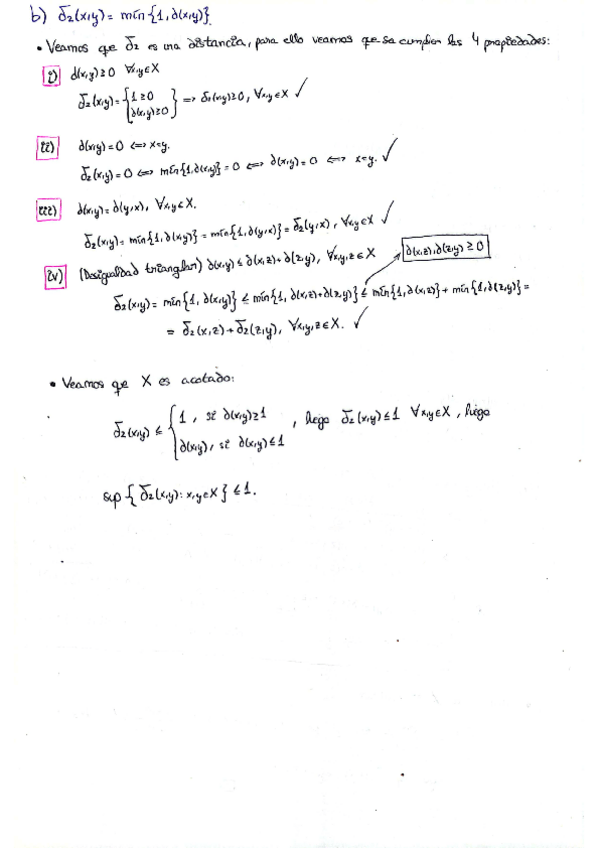 b) δ₂(x,y) = mín{1, d(x,y)}.
• Veamos que δ₂ es una distancia, para ello veamos que se cumplen las 4 propiedades:
i) d(x,y) ≥ 0 ∀x,y∈X
δ₂(x,y) = { 1 ≥ 0
d(x,y) ≥ 0 } => δ₂(x,y) ≥ 0, ∀x,y∈X ✓
ii) d(x,y) = 0 <=> x=y.
δ₂(x,y) = 0 <=> mín{1, d(x,y)} = 0 <=> d(x,y) = 0 <=> x=y. ✓
iii) d(x,y) = d(y,x), ∀x,y∈X.
δ₂(x,y) = mín{1, d(x,y)} = mín{1, d(y,x)} = δ₂(y,x), ∀x,y∈X ✓
iv) (Desigualdad triangular) d(x,y) ≤ d(x,z) + d(z,y), ∀x,y,z∈X
d(x,z), d(z,y) ≥ 0
δ₂(x,y) = mín{1, d(x,y)} ≤ mín{1, d(x,z)+d(z,y)} ≤ mín{1, d(x,z)} + mín{1, d(z,y)} =
= δ₂(x,z) + δ₂(z,y), ∀x,y,z∈X. ✓
• Veamos que X es acotado:
δ₂(x,y) ≤ { 1, si d(x,y) ≥ 1
d(x,y), si d(x,y) ≤ 1 , luego δ₂(x,y) ≤ 1 ∀x,y∈X, luego
sup{δ₂(x,y): x,y∈X} ≤ 1.